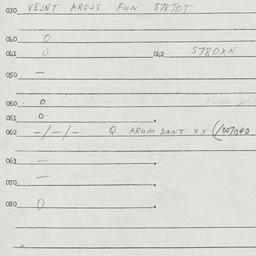 030 VEJNT ARDUS FUN 578TDT
040 0
041 0 042 5780XN
050 —
060 0
061 0
062 -/-/- Q ARUM DANT X X
063 —
070 —
080 0